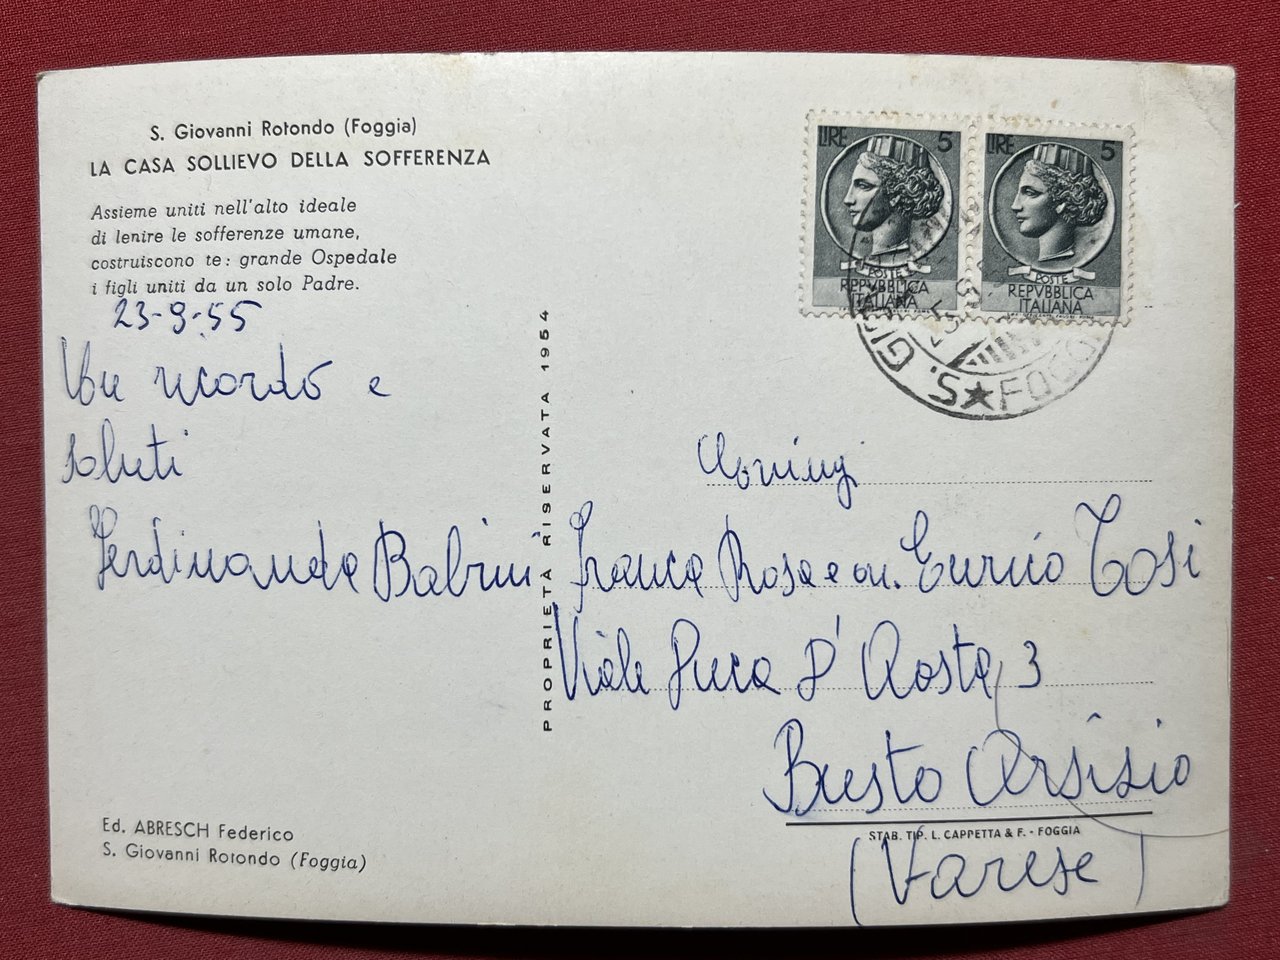 S. Giovanni Rotondo (Foggia)
LA CASA SOLLIEVO DELLA SOFFERENZA
Assieme uniti nell'alto ideale
di lenire le sofferenze umane,
costruiscono te: grande Ospedale
i figli uniti da un solo Padre.
23-9-55
Un ricordo e
saluti
Ferdinanda Babrini
PROPRIETÀ RISERVATA 1954
LIRE 5
POSTE
REPVBBLICA
ITALIANA
LIRE 5
POSTE
REPVBBLICA
ITALIANA
S. GIO
FOGGIA
Coniugi
Franca Rosa e on. Enrico Tosi
Viale Duca D'Aosta, 3
Busto Arsisio
(Varese)
Ed. ABRESCH Federico
S. Giovanni Rotondo (Foggia)
STAB. TIP. L. CAPPETTA & F. - FOGGIA